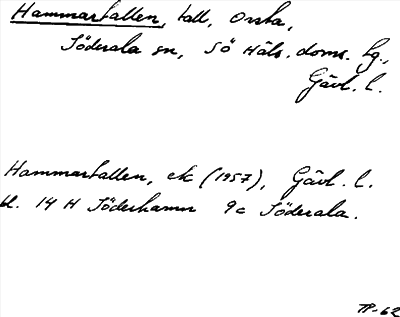 Hammartallen, tall, Orsta,
Söderala sn, SÖ Häls. doms. hg.,
Gävl. l.
Hammartallen, ek (1957), Gävl. l.
bl. 14 H Söderhamn 9c Söderala.
TP-62